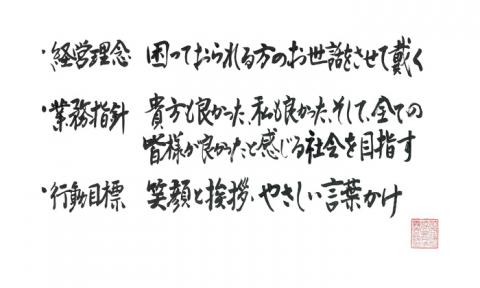 ・経営理念 困っておられる方のお世話をさせて戴く
・業務指針 貴方も良かった、私も良かった、そして、全ての
皆様が良かったと感じる社会を目指す
・行動目標 笑顔と挨拶、やさしい言葉かけ